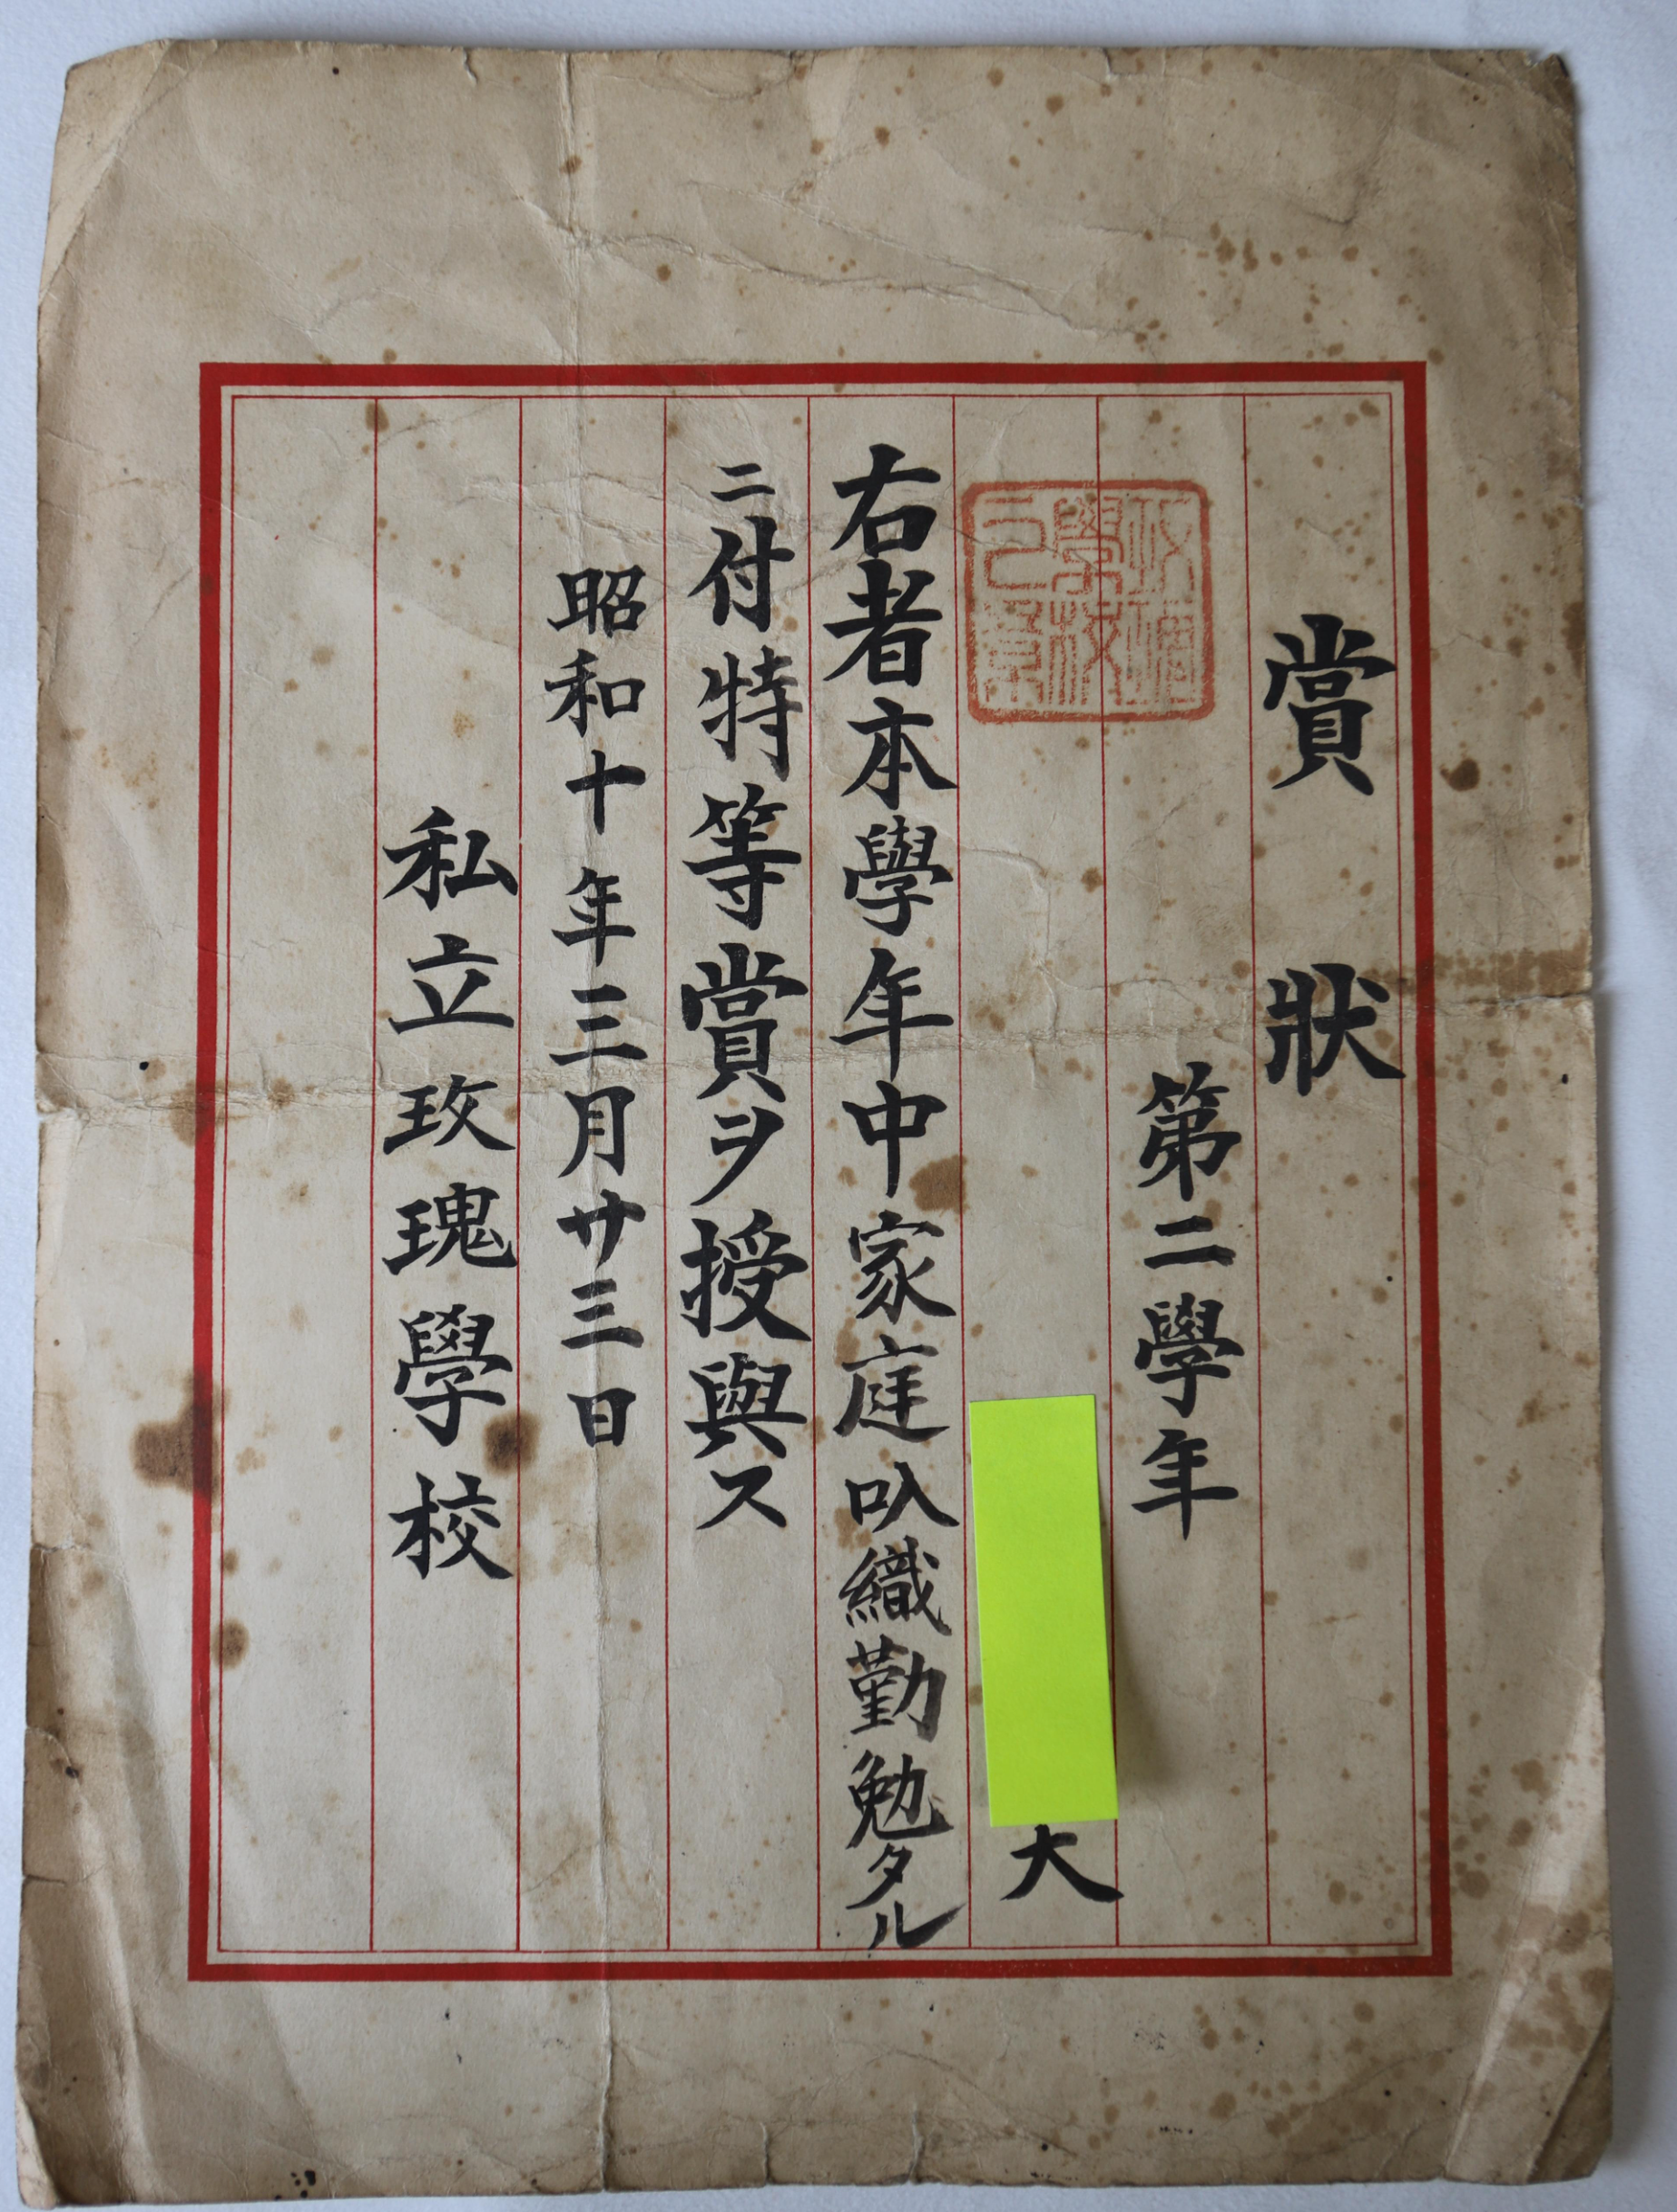 賞狀
第二學年
大
右者本學年中家庭叺織勤勉タル
ニ付特等賞ヲ授與ス
昭和十年三月廿三日
私立玫瑰學校
玫瑰
學校
之章